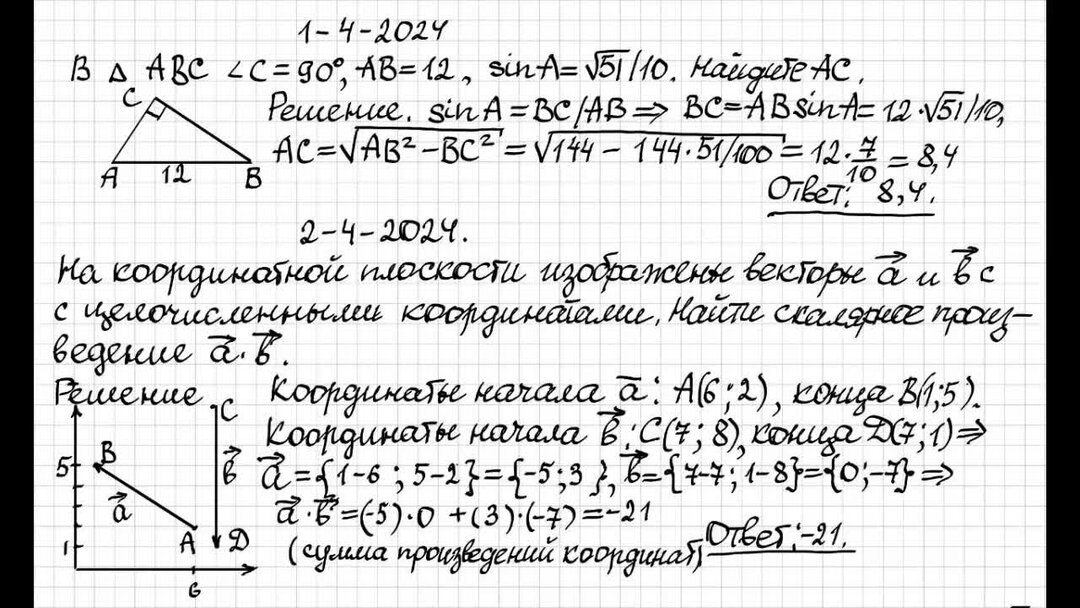 1-4-2024
В △ ABC ∠C=90°, AB=12, sinA=√51/10. Найдите AC.
C
A 12 B
Решение. sinA=BC/AB⇒ BC=ABsinA=12·√51/10,
AC=√AB²-BC²=√144-144·51/100=12·7/10=8,4
Ответ: 8,4.
2-4-2024.
На координатной плоскости изображены векторы a⃗ и b⃗ с
с целочисленными координатами. Найти скалярное произ-
ведение a⃗·b⃗.
Решение
Координаты начала a⃗: A(6;2), конца B(1;5).
Координаты начала b⃗: C(7;8), конца D(7;1)⇒
a⃗={1-6;5-2}={-5;3}, b⃗={7-7;1-8}={0;-7}⇒
a⃗·b⃗=(-5)·0+(3)·(-7)=-21
(сумма произведений координат)
Ответ:-21.
C
5 B b⃗
a⃗
A D
1
6